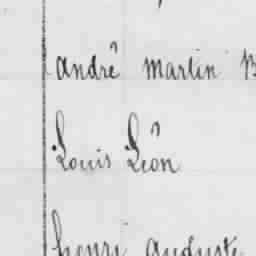 André Martin B
Louis Léon
henri auguste